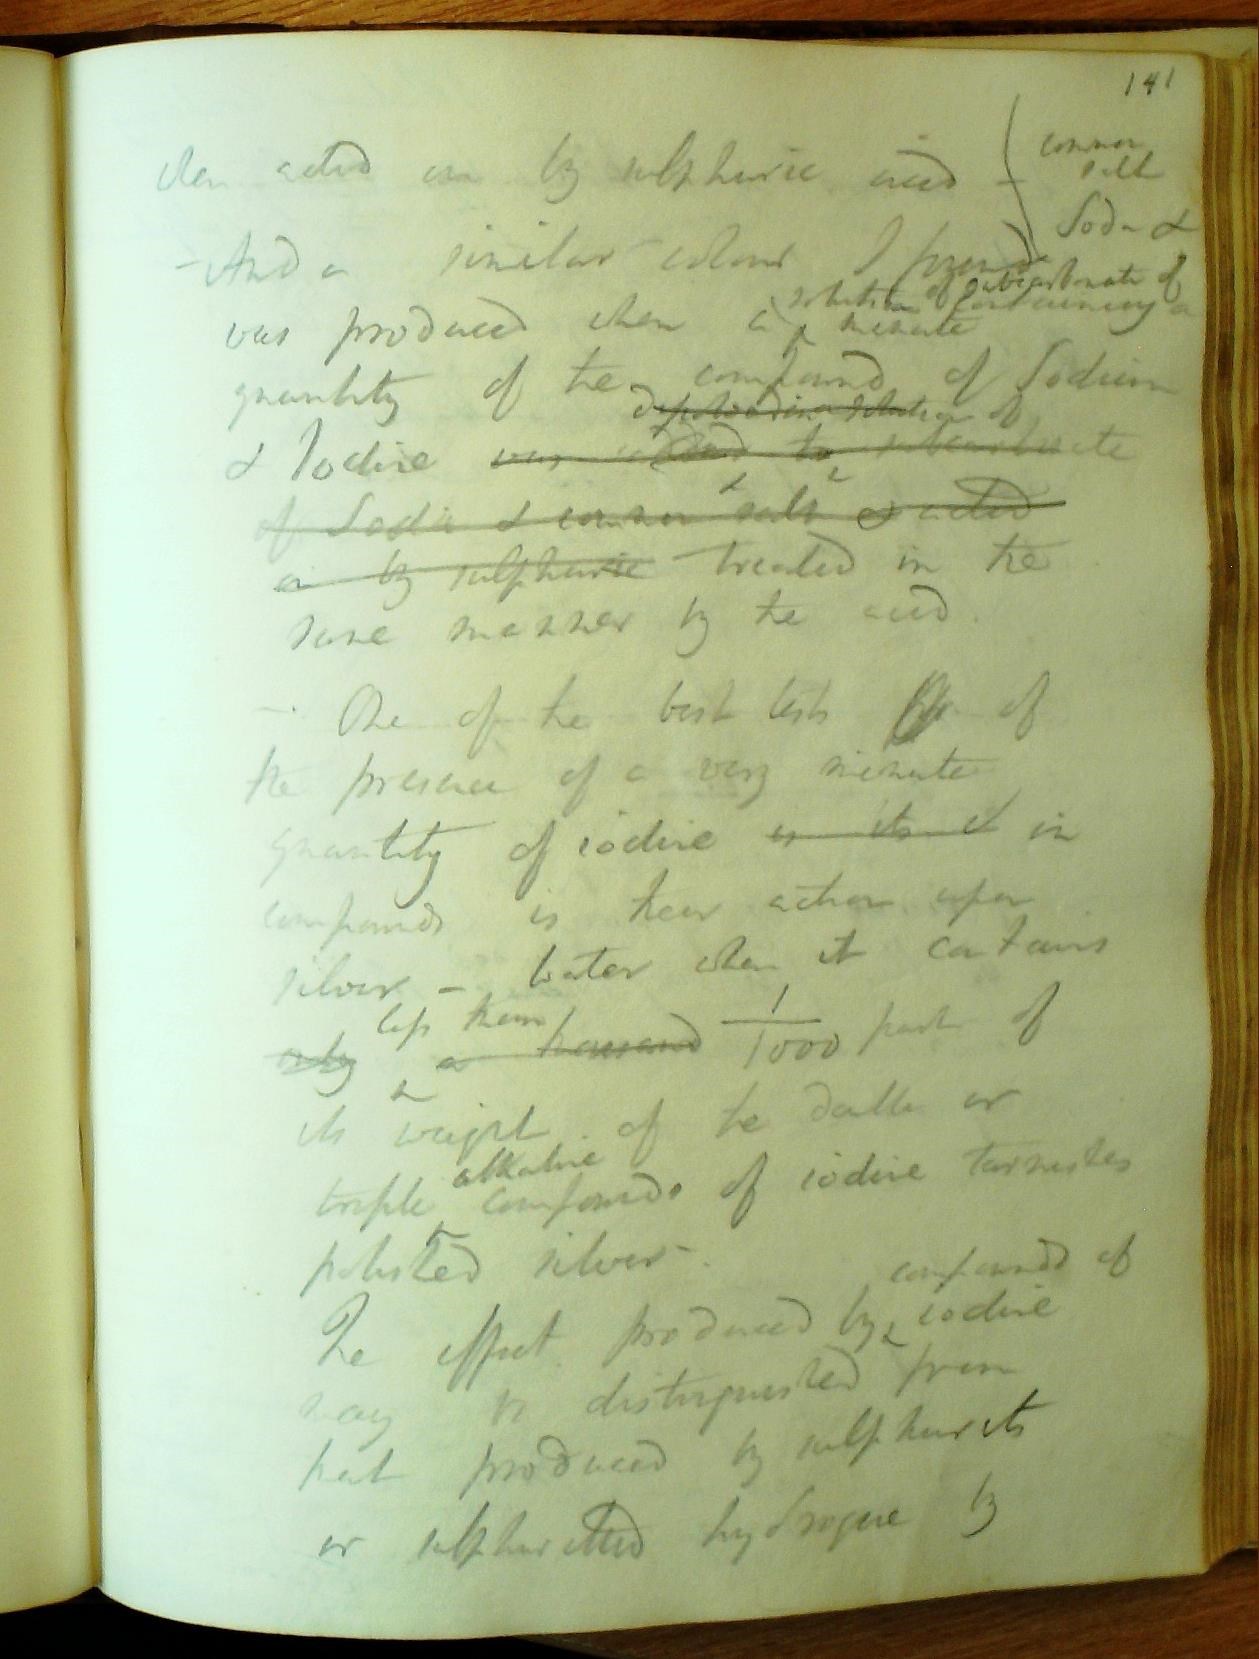 141
when acted on by sulphuric acid -
common
salt
Soda &
- And a similar colour I found
solution of subcarbonate of
containing a
was produced when a minute
quantity of the compound of Sodium
dissolved in a solution of
& Iodine was added to subcarbonate
of Soda & common salt & acted
on by sulphuric treated in the
same manner by the acid.
- One of the best tests of
the presence of a very minute
quantity of iodine is its & in
compounds is their action upon
silver - Water when it contains
less than
only a thousand 1/1000 part of
its weight of the double or
alkaline
triple compounds of iodine tarnishes
polished silver -.
compounds of
The effect produced by iodine
may be distinguished from
that produced by sulphurets
or sulphuretted hydrogene by